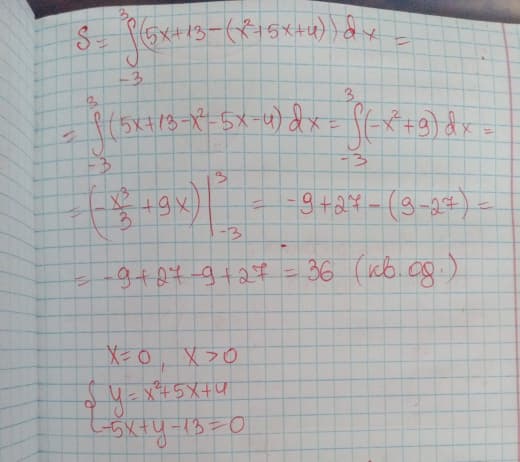 S = ∫_{-3}^{3} (5x+13-(x²+5x+4))dx =
= ∫_{-3}^{3} (5x+13-x²-5x-4)dx = ∫_{-3}^{3} (-x²+9)dx =
= (-x³/3 + 9x)|_{-3}^{3} = -9+27-(9-27) =
= -9+27-9+27 = 36 (кв. од.)
x=0, x>0
{ y=x²+5x+4
-5x+y-13=0